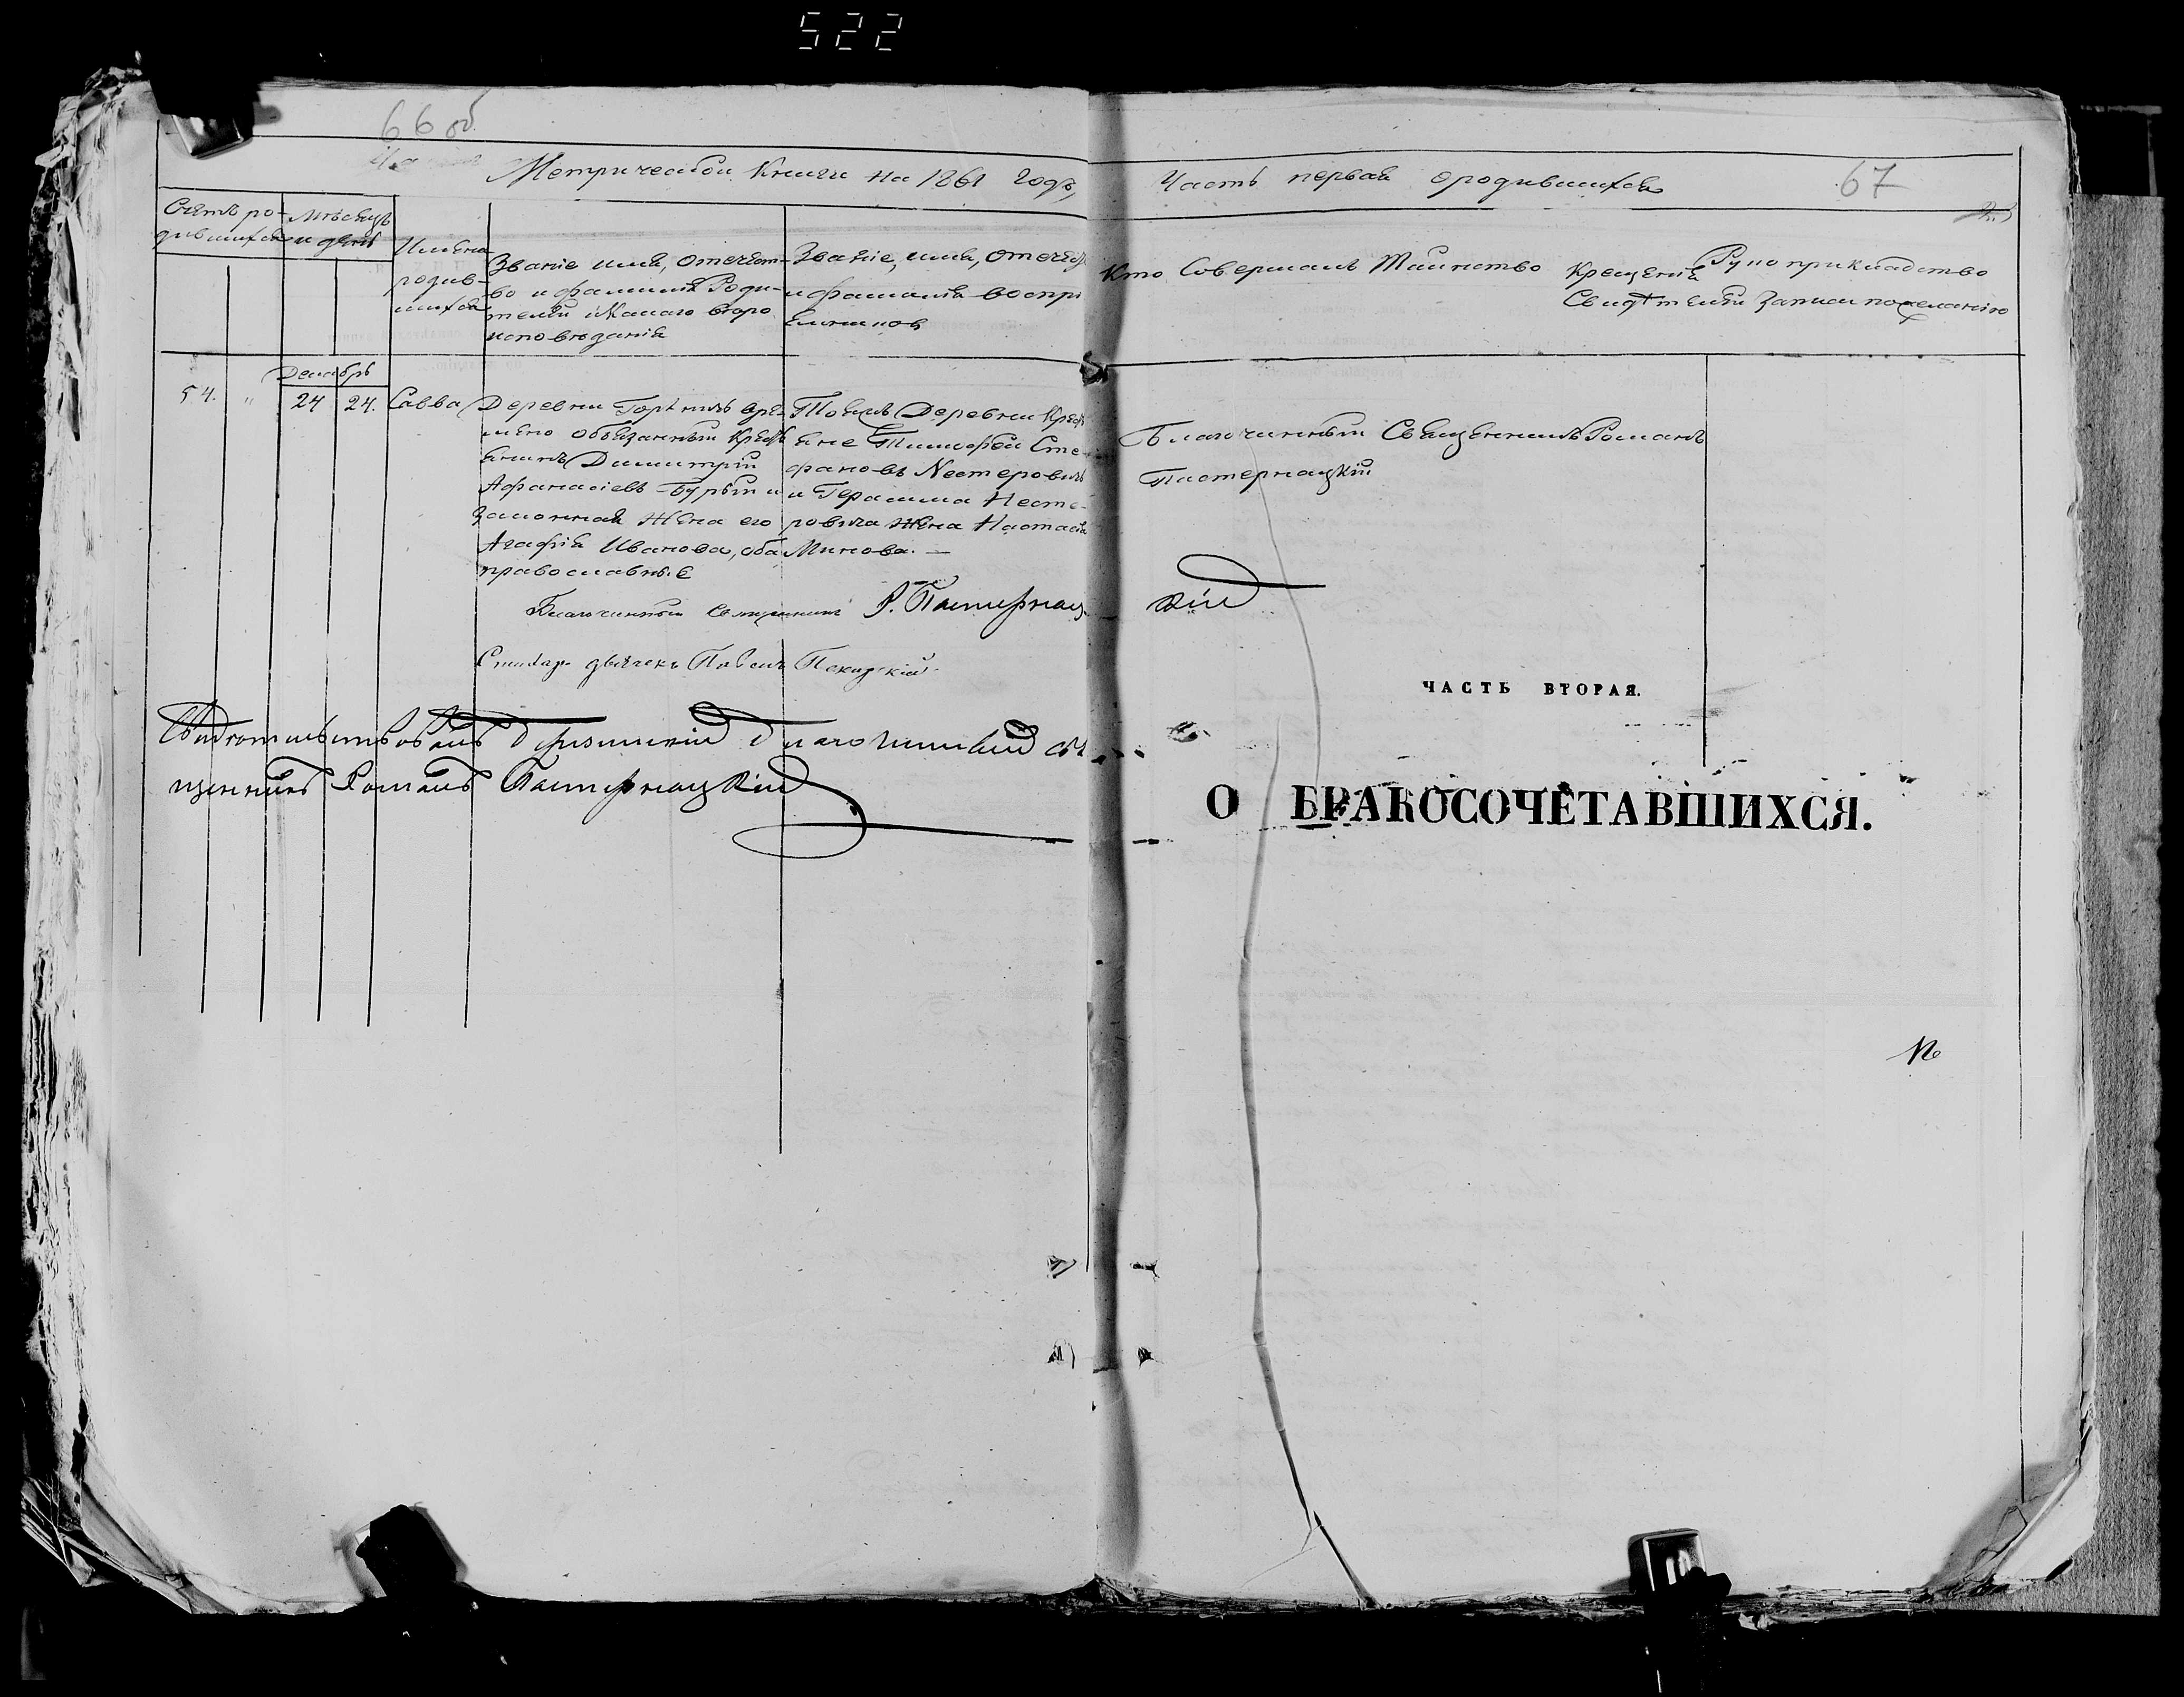 522
66 об
67
Метрической Книги на 1861 годъ,
Часть первая о родившихся
Счетъ ро-
дившихся
Мѣсяцъ
и день
Имена
родив-
шихся
Званіе имя, отечест-
во и фамилія Роди-
телей и Какого вѣро
исповѣданія
Званіе, имя, отечес
и фамилія воспрі
емниковъ
Кто Совершалъ Таинство Крещенія
Рукоприкладство
Свидѣтелей Записи по желанію
Декабрь
54. " 24 24. Савва
Деревни
обязанный Крестъ
янинъ Димитрій
Афанасіевъ Бурый и
законная жена его
Агафія Иванова, оба
православные
Тоежъ Деревни Крест
яне Тимофей Сте-
фановъ Нестеровичъ
и Герасима Несте-
ровича жена Настасія
Минова. —
Благочинный Священникъ Романъ
Пастернацкій
Благочинный Священникъ Р. Пастернацкій
дьячекъ Павелъ
Свидѣтельствовалъ благочинный свя
щенникъ Романъ Пастернацкій
ЧАСТЬ ВТОРАЯ.
О БРАКОСОЧЕТАВШИХСЯ.